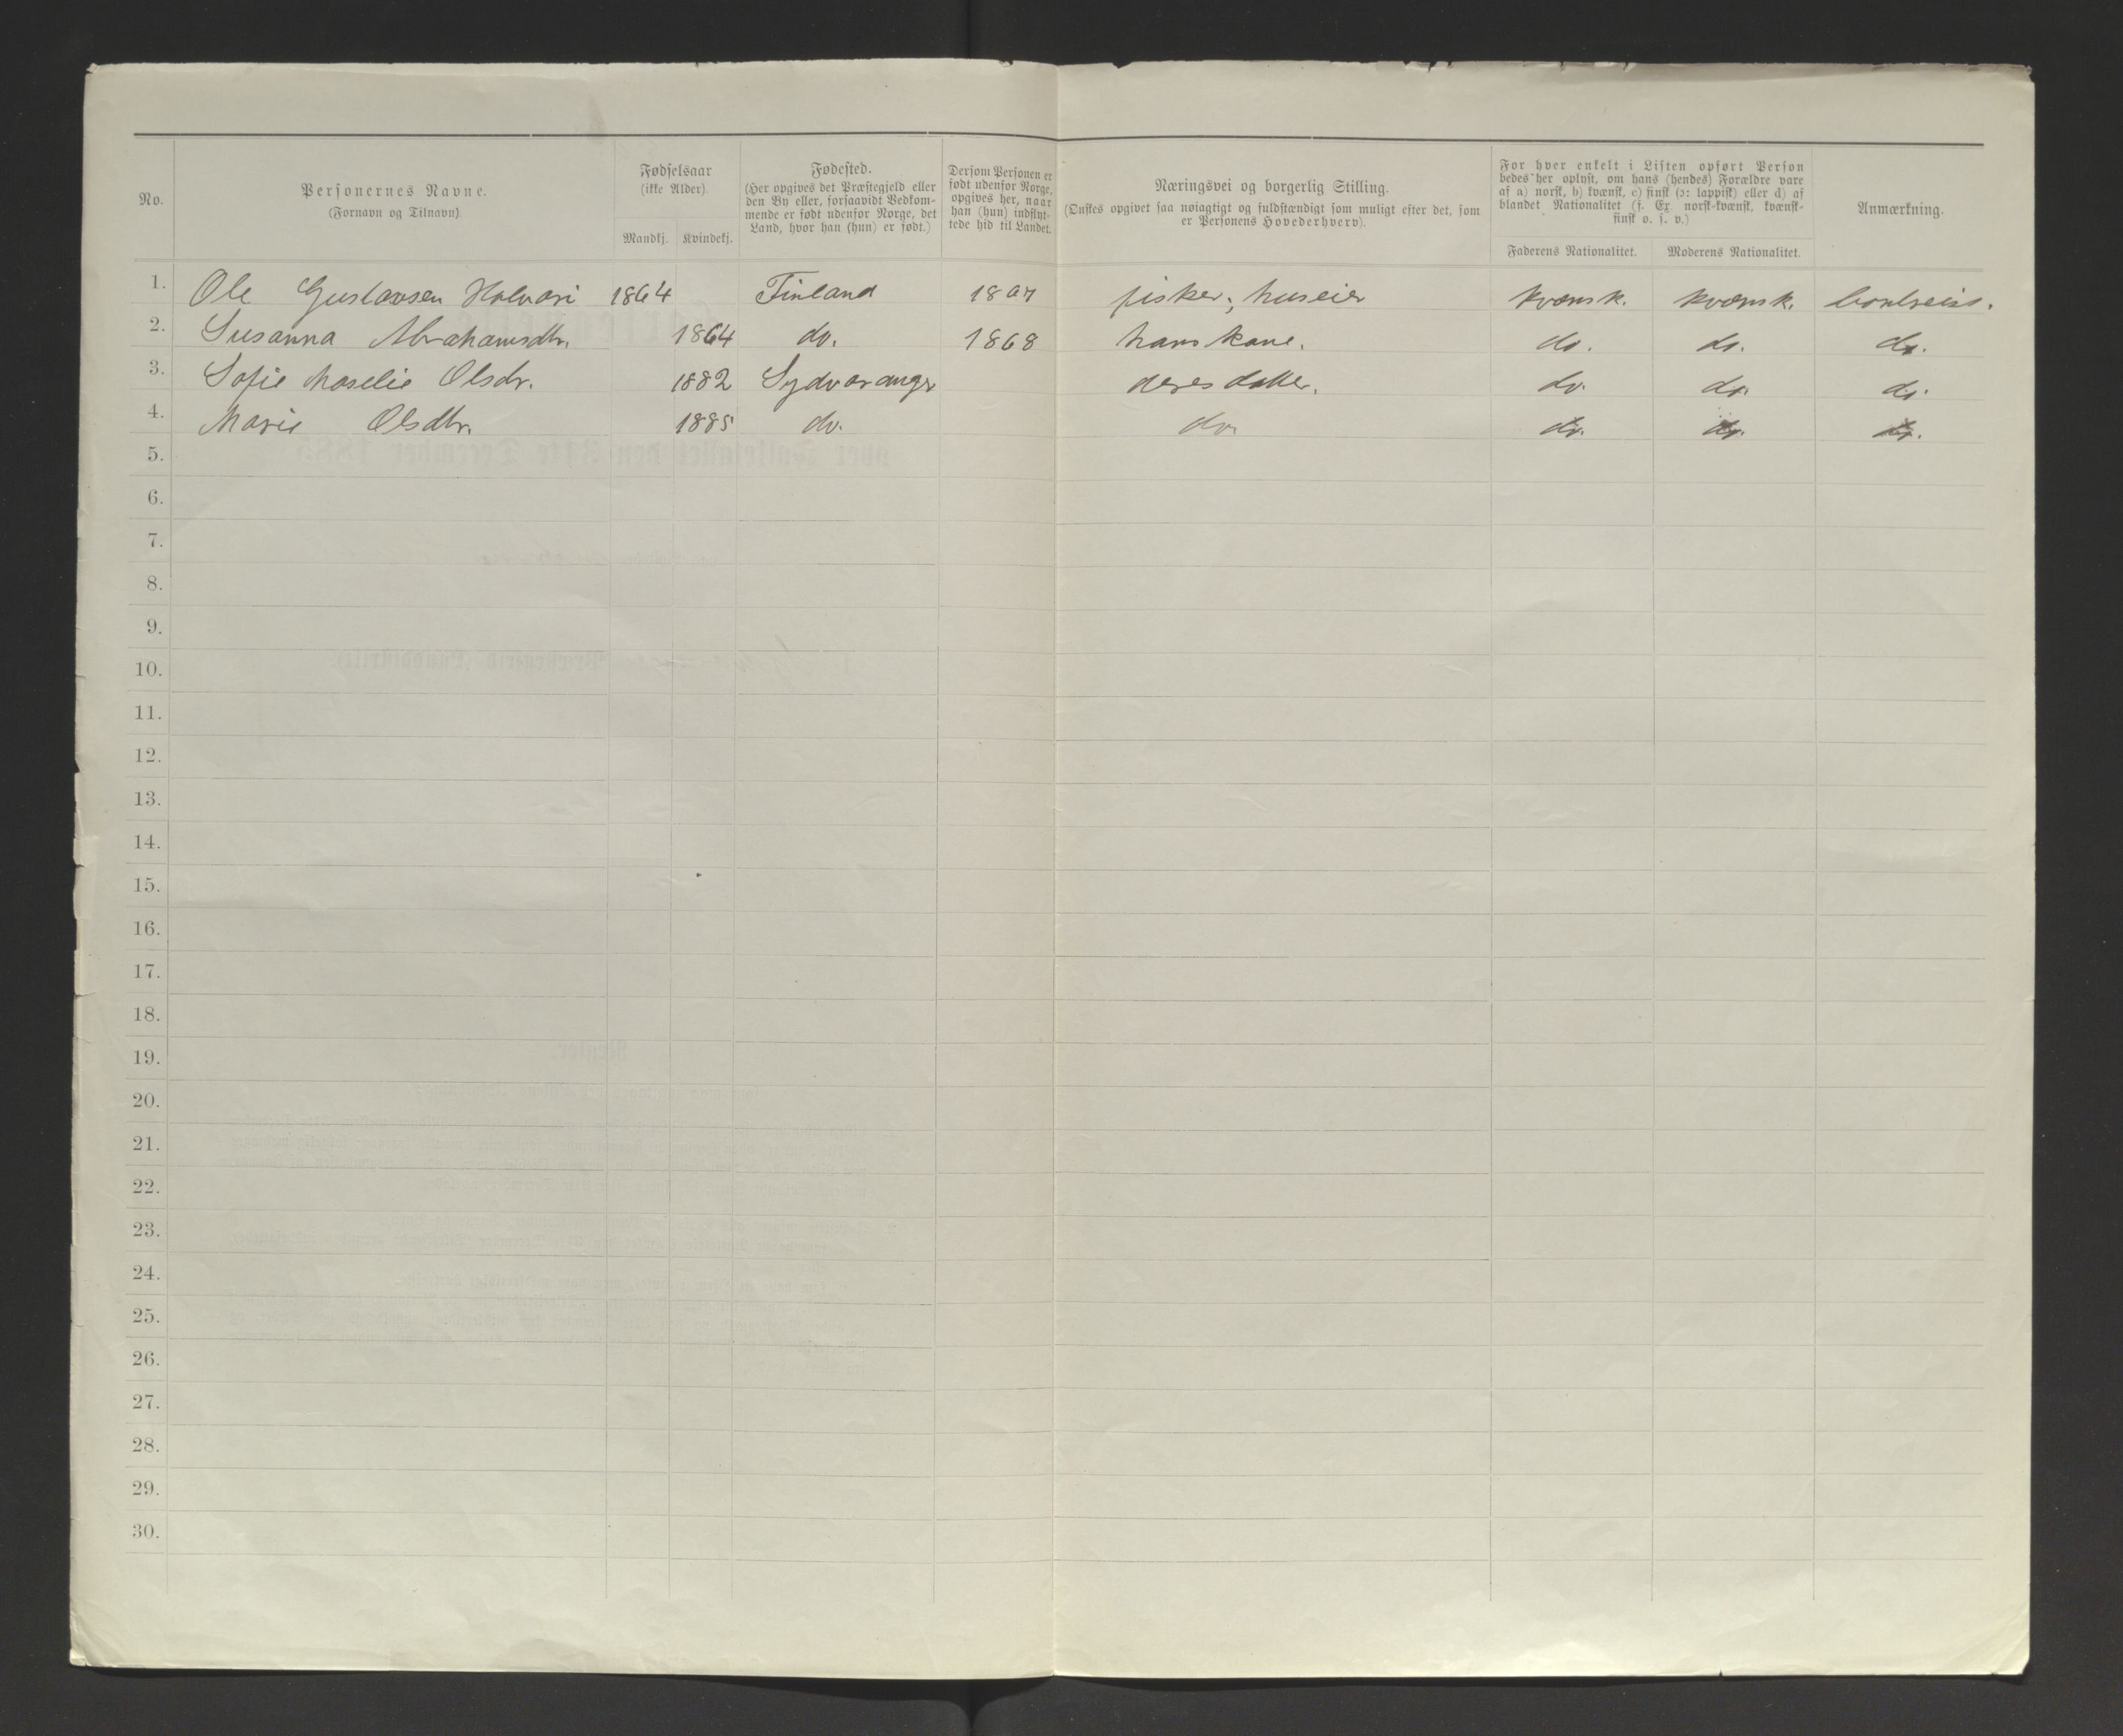 No.
Personernes Navne.
(Fornavn og Tilnavn)
Fødselsaar
(ikke Alder).
Mandkj. Kvindekj.
Fødested.
(Her opgives det Præstegjeld eller
den By eller, forsaavidt Vedkom-
mende er født udenfor Norge, det
Land, hvor han (hun) er født.)
Dersom Personen er
født udenfor Norge,
opgives her, naar
han (hun) indflyt-
tede hid til Landet.
Næringsvei og borgerlig Stilling.
(Ønskes opgivet saa nøiagtigt og fuldstændigt som muligt efter det, som
er Personens Hovederhverv).
For hver enkelt i Listen opført Person
bedes her oplyst, om hans (hendes) Forældre vare
af a) norsk, b) kvænsk, c) finsk (ɔ: lappisk) eller d) af
blandet Nationalitet (f. Ex. norsk-kvænsk, kvænsk-
finsk o. s. v.)
Faderens Nationalitet. Moderens Nationalitet.
Anmærkning.
1. Ole Gustavsen 1864 Finland fisker, huseier kvænsk. kvænsk. bortreist.
2. Susanna Abrahamsdtr. 1864 do. 1868 hans kone. do. do. do.
3. Sofie Olsdr. 1882 Sydvaranger deres datter. do. do. do.
4. Marie Olsdtr. 1885 do. do. do. do. do.
5.
6.
7.
8.
9.
10.
11.
12.
13.
14.
15.
16.
17.
18.
19.
20.
21.
22.
23.
24.
25.
26.
27.
28.
29.
30.